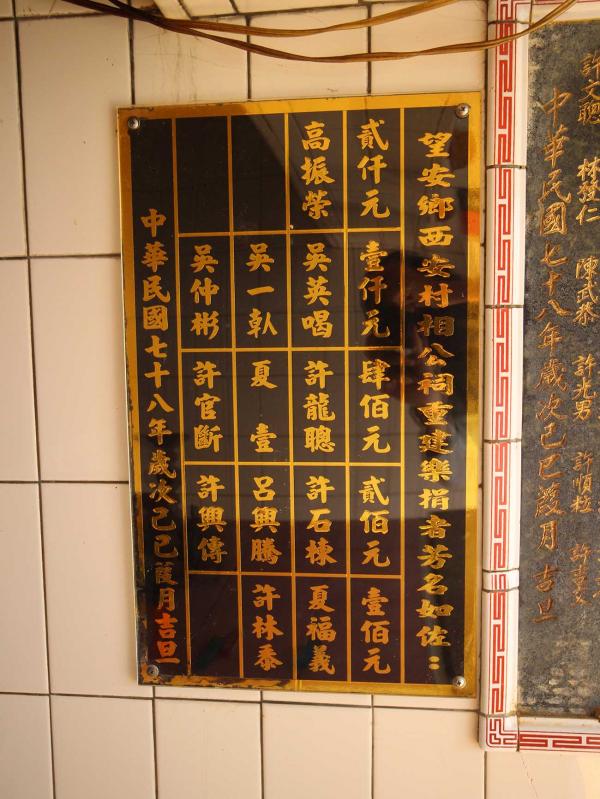 許文聰 林發仁 陳武恭 許光男 許順
中華民國七十八年歲次己巳葭月吉旦
望安鄉西安村相公祠重建樂捐者芳名如佐：
貳仟元 壹仟元 肆佰元 貳佰元 壹佰元
高振榮 吳英喝 許龍聰 許石棟 夏福義
吳一倝 夏壹 呂興騰 許林泰
吳仲彬 許官斷 許興傳
中華民國七十八年歲次己巳葭月吉旦